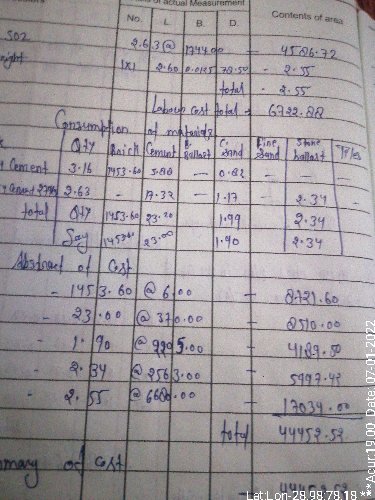 of actual Measurement
No. L. B. D. Contents of area
502 2.63 @ 1744.00 - 4586.72
ight 1x1 2.60 0.0125 78.50 - 2.55
total - 2.55
Labour cost total - 6722.88
Consumption of materials
Qty Brick Cement B. Ballast C. Sand Fine Sand Stone ballast Tiles
Cement 3.16 1453.60 5.88 - 0.82 - -
2.63 - 17.32 - 1.17 - 2.34
total Qty 1453.60 23.20 1.99 2.34
Say 1453.60 23.00 1.90 2.34
Abstract of Cost
- 1453.60 @ 6.00 - 8721.60
- 23.00 @ 370.00 - 8510.00
- 1.90 @ 2205.00 - 4189.50
- 2.34 @ 2563.00 - 5997.42
- 2.55 @ 6680.00 - 17034.00
total 44452.52
mmary of Cost
44452.52
Lat Lon-28.98,79.18 *** Acur:19.00 Date:07-01-2022